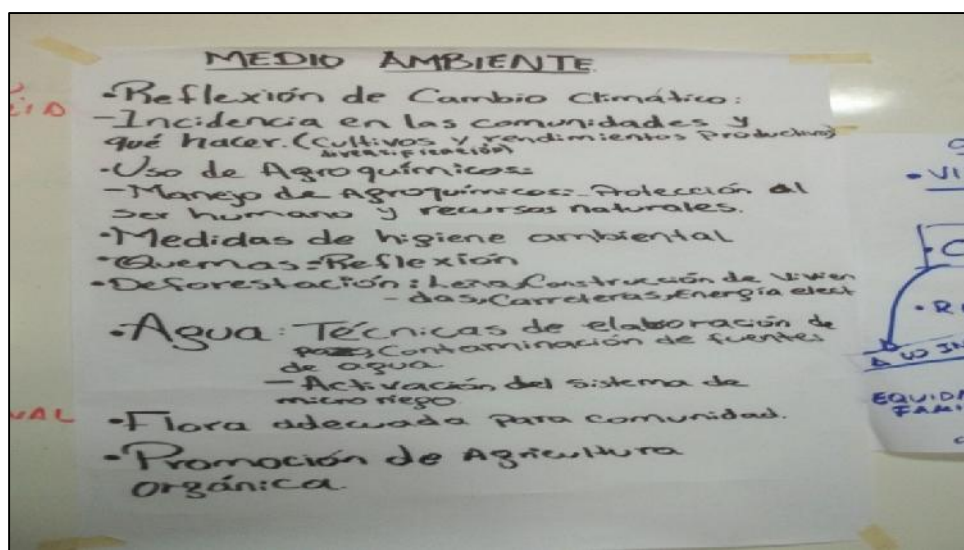 MEDIO AMBIENTE
• Reflexión de Cambio Climático:
- Incidencia en las comunidades y
qué hacer. (Cultivos y rendimientos productivos)
diversificación)
• Uso de Agroquímicos:
- Manejo de Agroquímicos: Protección al
ser humano y recursos naturales.
• Medidas de higiene ambiental
• Quemas = Reflexión
• Deforestación: Leña, Construcción de vivien
- das, Carreteras, Energía elect
• Agua: Técnicas de elaboración de
Contaminación de fuentes
de agua.
- Activación del sistema de
micro riego.
• Flora adecuada para comunidad.
• Promoción de Agricultura
orgánica.
• VI
C
• R
EQUIDA
FAMI